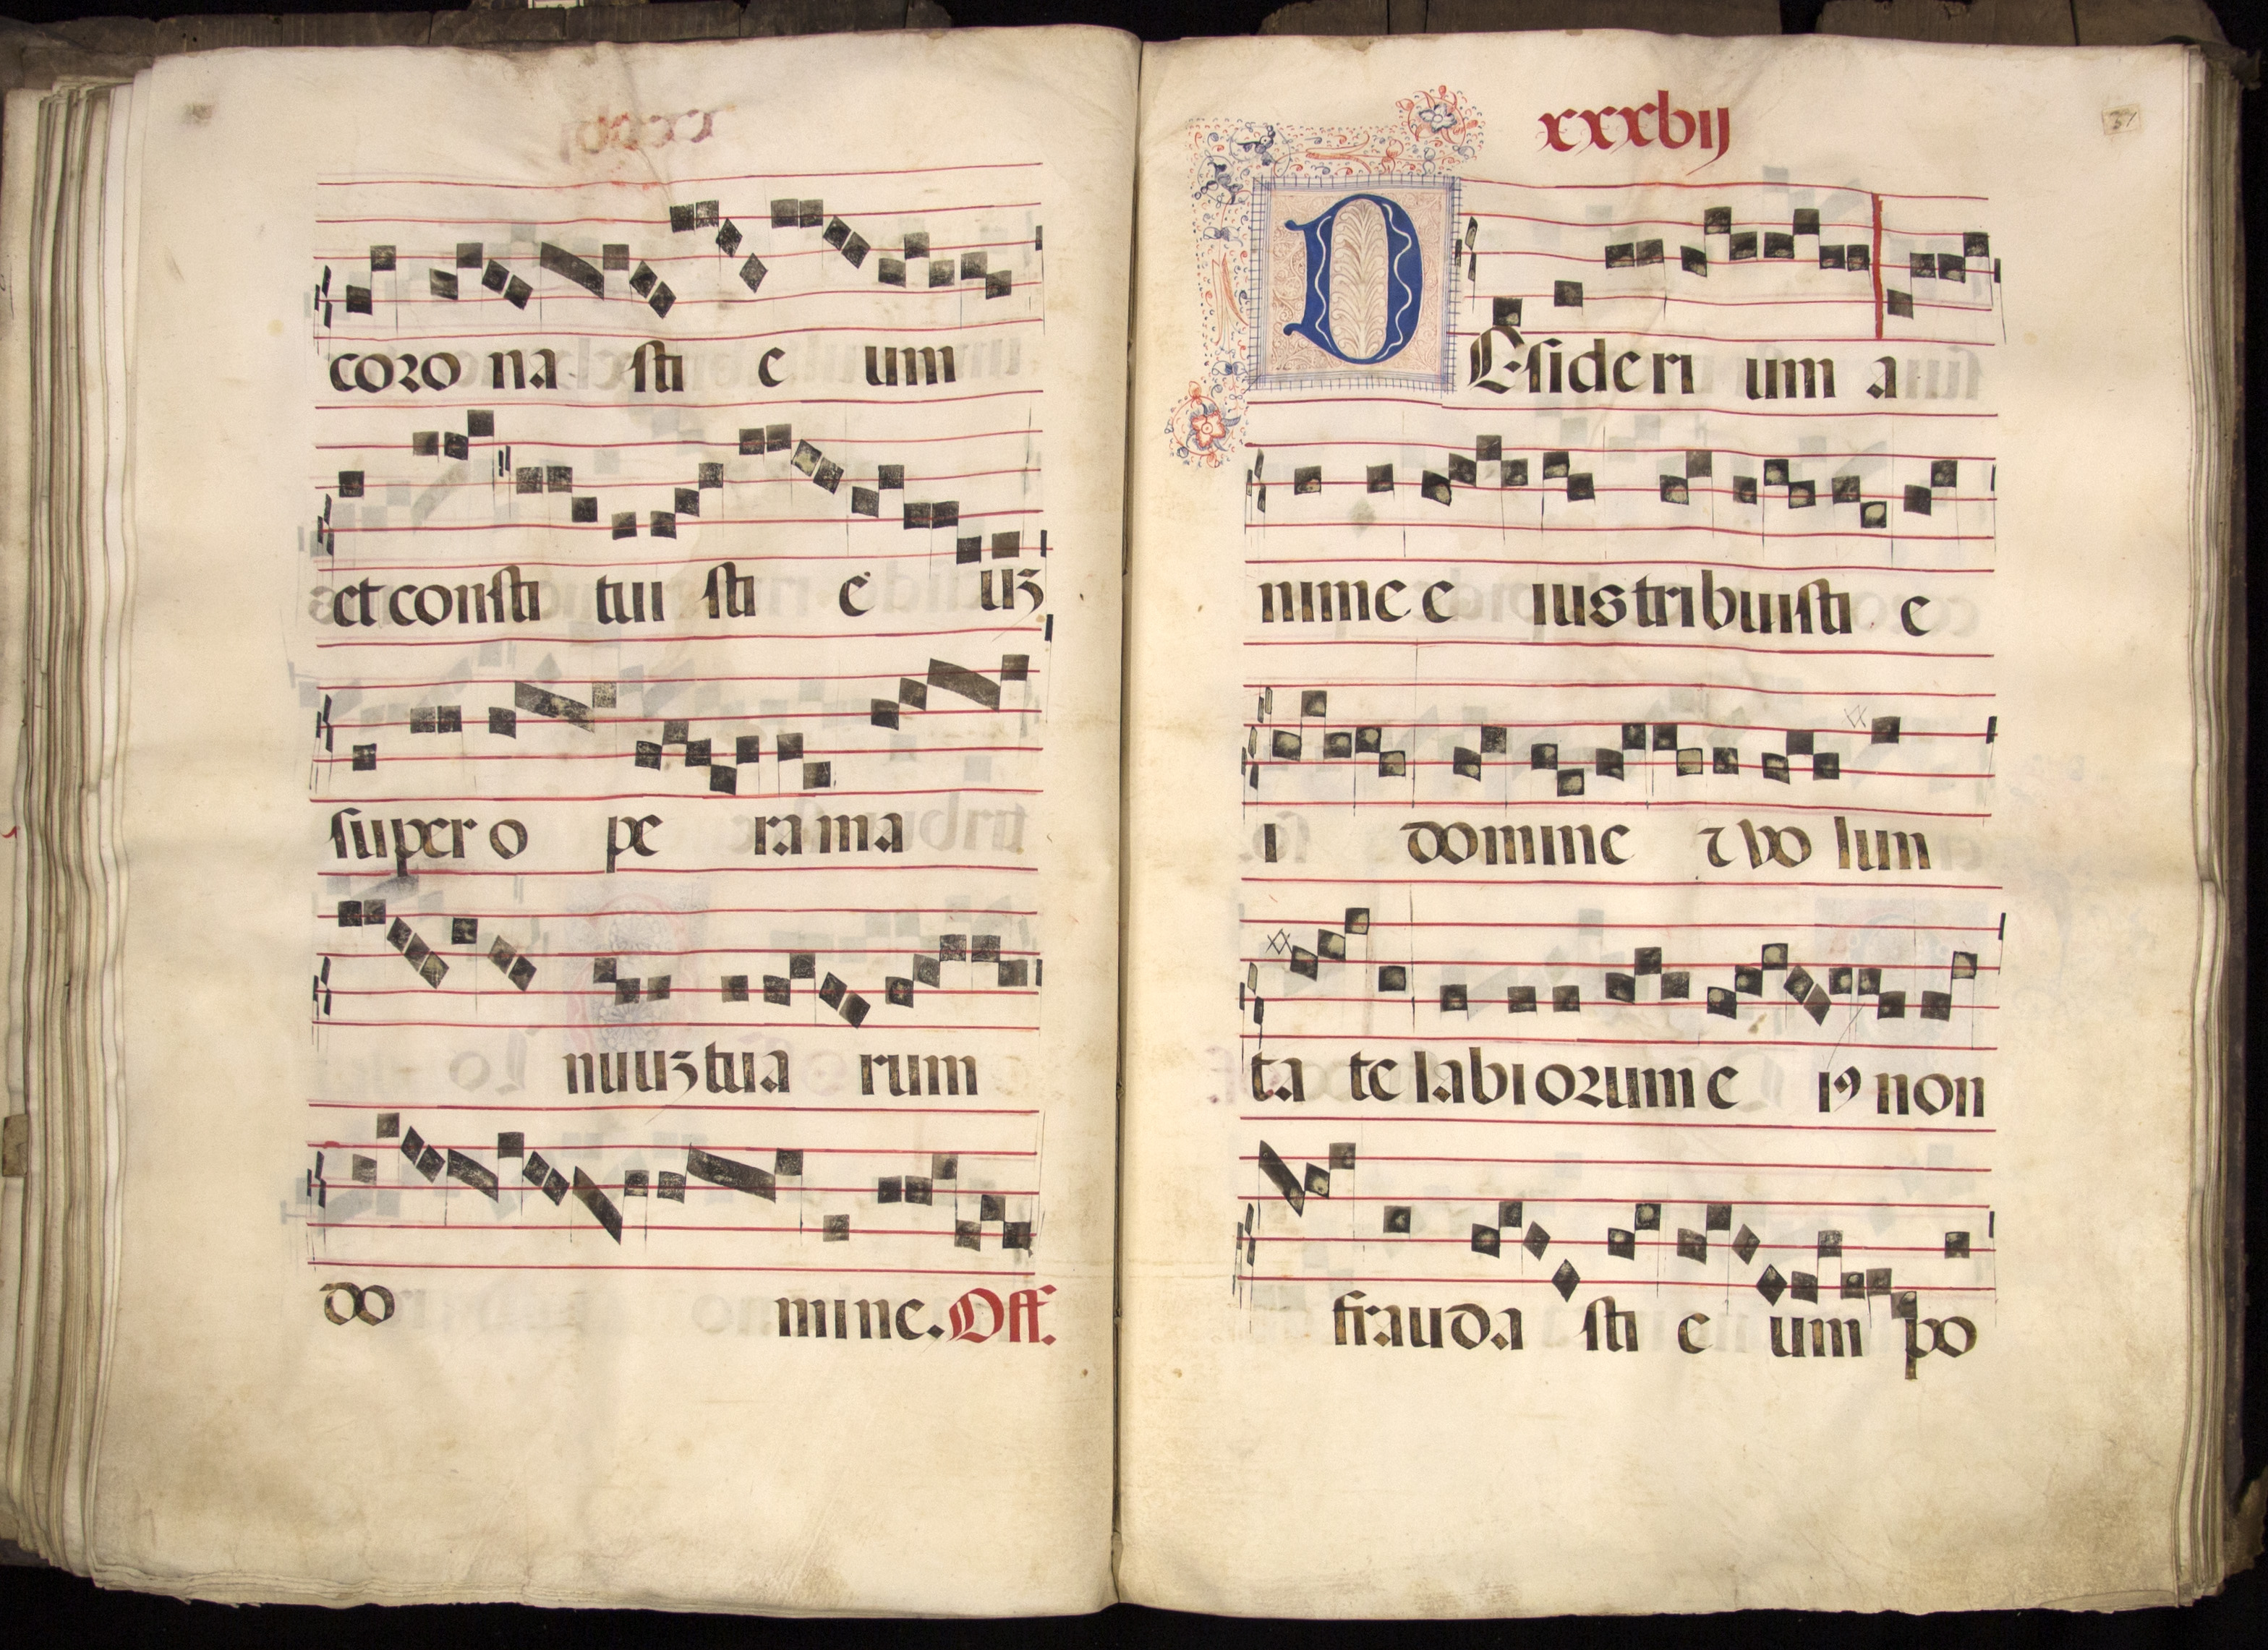 coro na sti e um
et consti tui sti e uʒ
super o pe ra ma
nuuʒ tua rum
do mine. Off.
xxxvij
37
DEsideri um a
nime e ius tribuisti e
i domine ⁊ vo lun
ta te labiorum e iꝰ non
frauda sti e um po